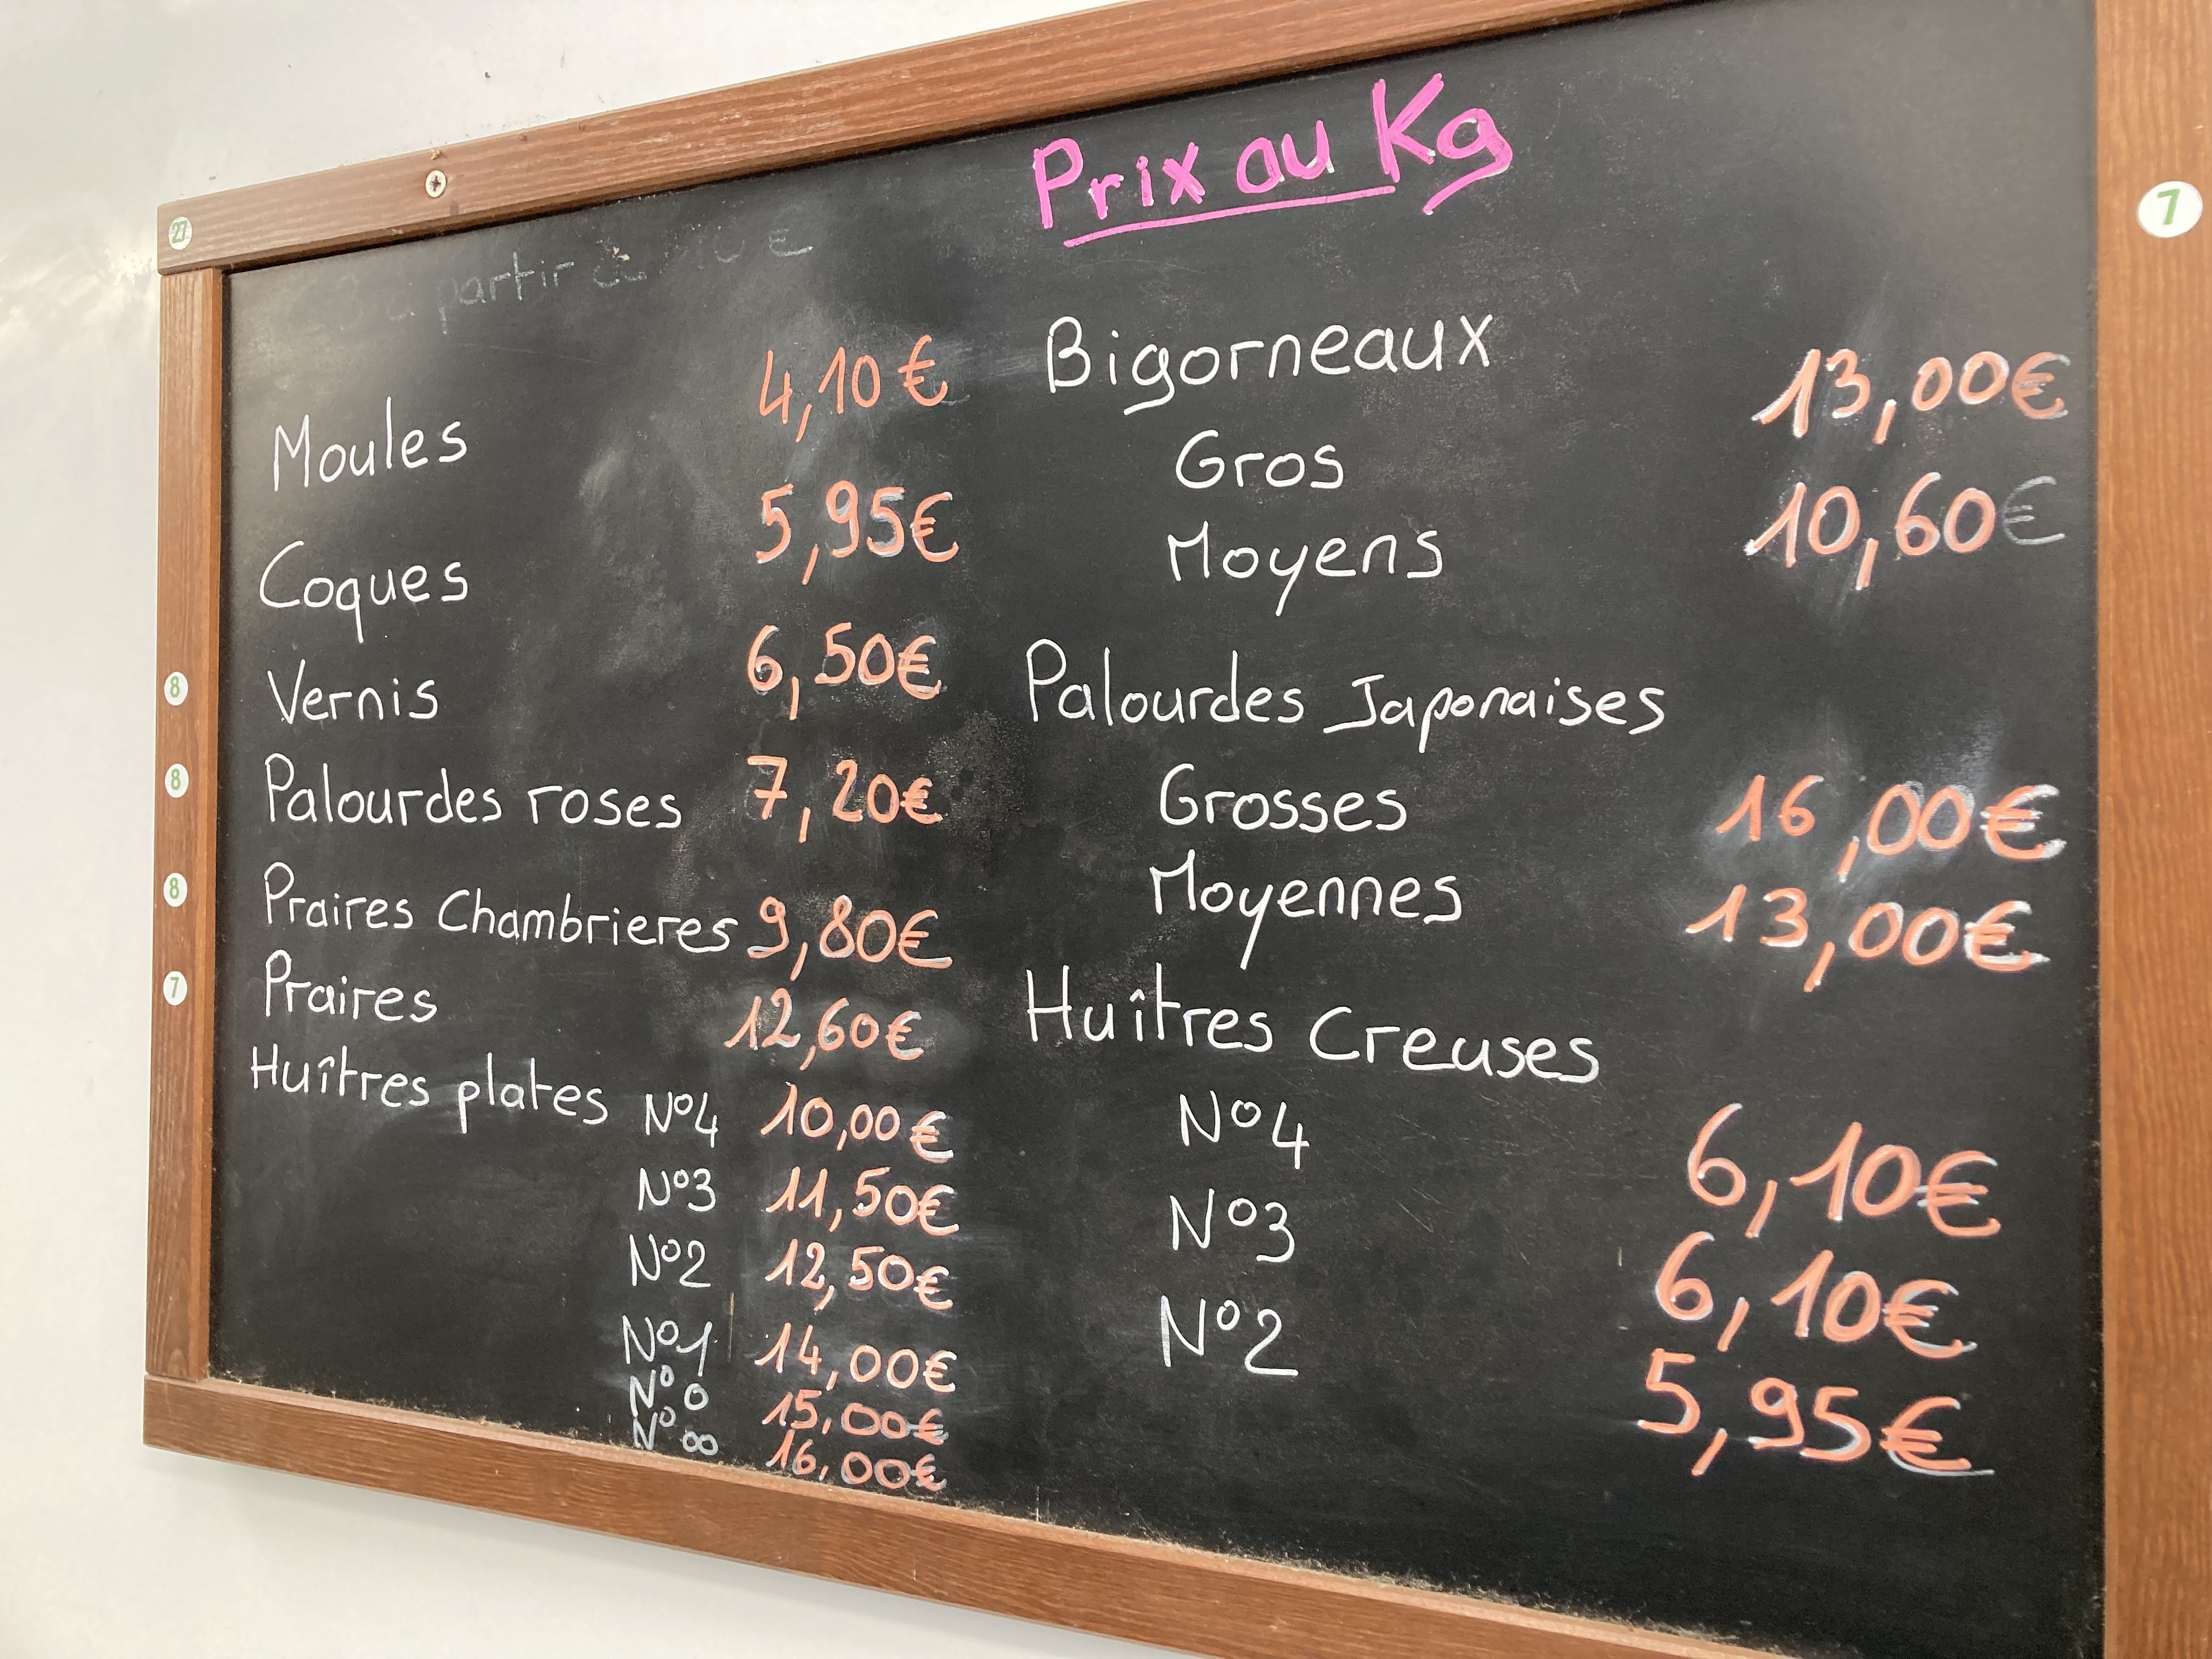 Prix au Kg
partir
Moules 4,10€
Coques 5,95€
Vernis 6,50€
Palourdes roses 7,20€
Praires Chambrieres 9,80€
Praires 12,60€
Huîtres plates N°4 10,00€
N°3 11,50€
N°2 12,50€
N°1 14,00€
N°0 15,00€
N°00 16,00€
Bigorneaux
Gros 13,00€
Moyens 10,60€
Palourdes Japonaises
Grosses 16,00€
Moyennes 13,00€
Huîtres Creuses
N°4 6,10€
N°3 6,10€
N°2 5,95€
27
8
8
8
7
7